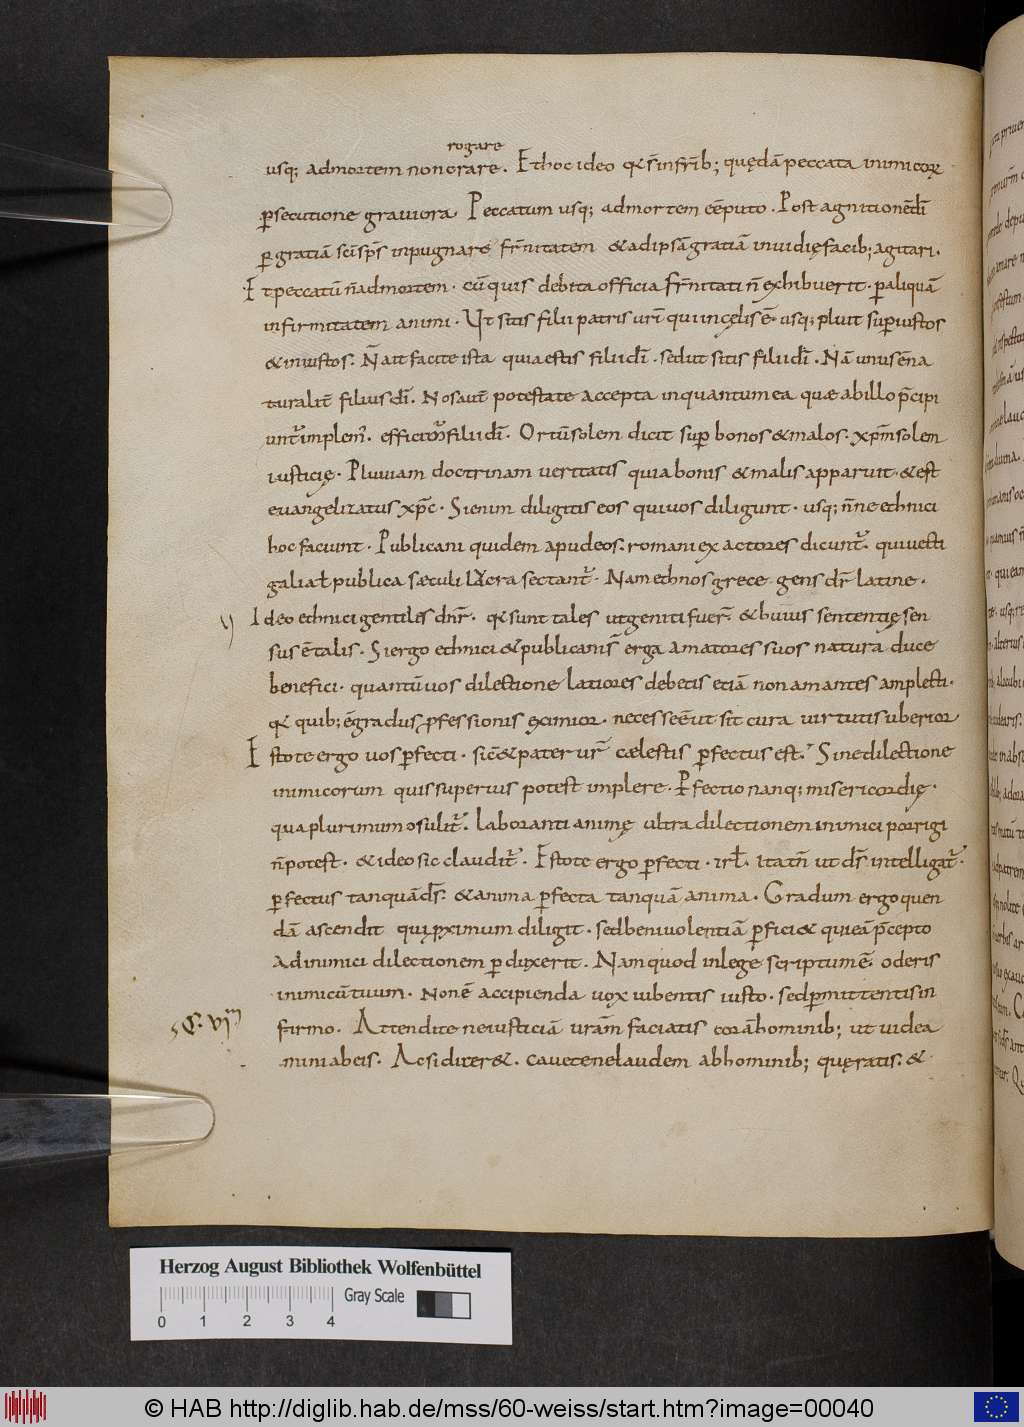 rogare
usq; admortem non orare. Et hoc ideo q& s̄ infr̄ib; quędā peccata inimicoꝝ
ꝑsecutione graviora. Peccatum usq; admortem eē puto. Post agnitionē dī
ꝑ gratiā sc̄i sp̄s inpugnare fr̄nitatem & ad ipsā gratiā invidię facib; agitari.
Et peccatū n̄ admortem. cū quis debita officia fr̄nitati n̄ exhibuerit. ꝑ aliquā
infirmitatem animi. Ut sitis filii patris vr̄i qui in cęlis ē. usq; pluit suꝑ iustos
& iniustos. N̄ ait facite ista quia estis filii dī. sed ut sitis filii dī. Nā unus ē na
turalit̄ filius dī. Nos aut̄ potestate accepta inquantum ea quae ab illo p̄cipi
unt̄ implem̄. efficim̄ filii dī. Ortū solem dicit suꝑ bonos & malos. xp̄m solem
iusticię. Pluviam doctrinam veritatis quia bonis & malis apparuit. & est
evangelizatus xp̄c. Si enim diligitis eos qui vos diligunt. usq; n̄ne ethnici
hoc faciunt. Publicani quidem apud eos. romani exactores dicunt̄. qui vecti
galia ł publica saeculi lucra sectant̄. Nam ethnos grece gens dr̄ latine.
Ideo ethnici gentiles dnr̄. q& sunt tales ut geniti fuer̄. & huius sententię sen
sus ē talis. Si ergo ethnici & publicani s̄ erga amatores suos natura duce
benefici. quantū vos dilectione latiores debetis etiā non amantes amplecti.
q& quib; ē gradus ꝓfessionis eximior. necesse ē ut sit cura virtutis uberior
Estote ergo vos ꝑfecti. sic̄ & pater vr̄ caelestis ꝑfectus est. Sine dilectione
inimicorum quis superius potest implere. Ꝑfectio nanq; misericordię.
qua plurimum osulit̄. laboranti animę ultra dilectionem inimici porrigi
n̄ potest. & ideo sic claudit̄. Estote ergo ꝑfecti. irł. Ita tn̄ ut ds̄ intelligat̄.
ꝑfectus tanquā ds̄. & anima ꝑfecta tanquā anima. Gradum ergo quen
dā ascendit qui ꝓximum diligit. sed benivolentiā ꝑfici& qui eā p̄cepto
ad inimici dilectionem ꝑduxerit. Nam quod in lege scriptum ē. oderis
inimicū tuum. Non ē accipienda vox iubentis iusto. sed ꝑmittentis in
sC. Vi
firmo. Attendite ne iusticiā vrām faciatis corā hominib; ut videa
mini ab eis. Ac si dixer&. cavete ne laudem ab hominib; quęratis. &
Herzog August Bibliothek Wolfenbüttel
0 1 2 3 4
Gray Scale
© HAB http://diglib.hab.de/mss/60-weiss/start.htm?image=00040